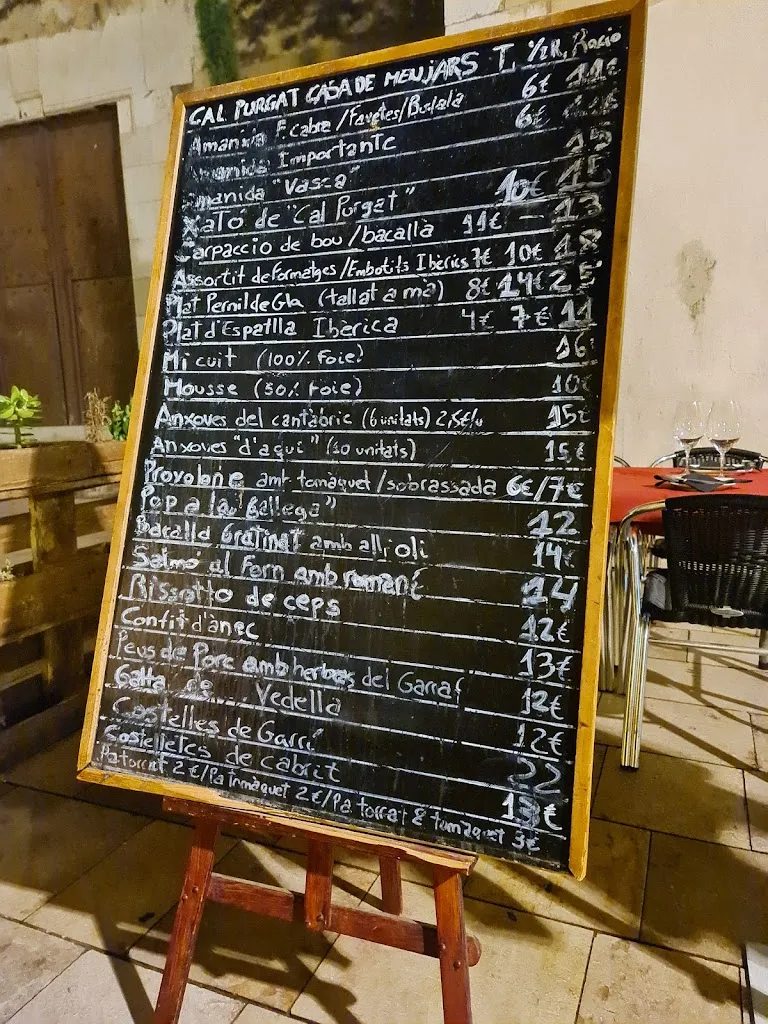 CAL PURGAT CASA DE MENJARS T, 1/2R, Racio
Amanida F. cabra/Favetes/Buslala 6€ 11€
Amanida Importante 6€
Amanida "Vasca" 15
Xató de "Cal Purgat" 10€ 15
Carpaccio de bou/bacallà 11€ - 13
Assortit de Formatges/Embotits Ibèrics 7€ 10€ 18
Plat Pernil de Gla (tallat a mà) 8€ 14€ 25
Plat d'Espatlla Iberica 4€ 7€ 11
Mi cuit (100% Foie) 16
Mousse (50% Foie) 10€
Anxoves del cantàbric (6 unitats) 2,5€/u 15€
Anxoves "d'aqui" (10 unitats) 15€
Provolone amb tomàquet/sobrassada 6€/7€
Pop a la "Gallega" 12
Bacallà Gratinat amb all i oli 14€
Salmó al Forn amb 14
Rissotto de ceps 12€
Confit d'ànec 13€
Peus de Porc amb herbes del Garraf 12€
Galta de Vedella 12€
Costelles de Garrí 22
Costelletes de cabrit 13€
Pa torrat 2€/Pa tomàquet 2€/Pa torrat & tomàquet 3€